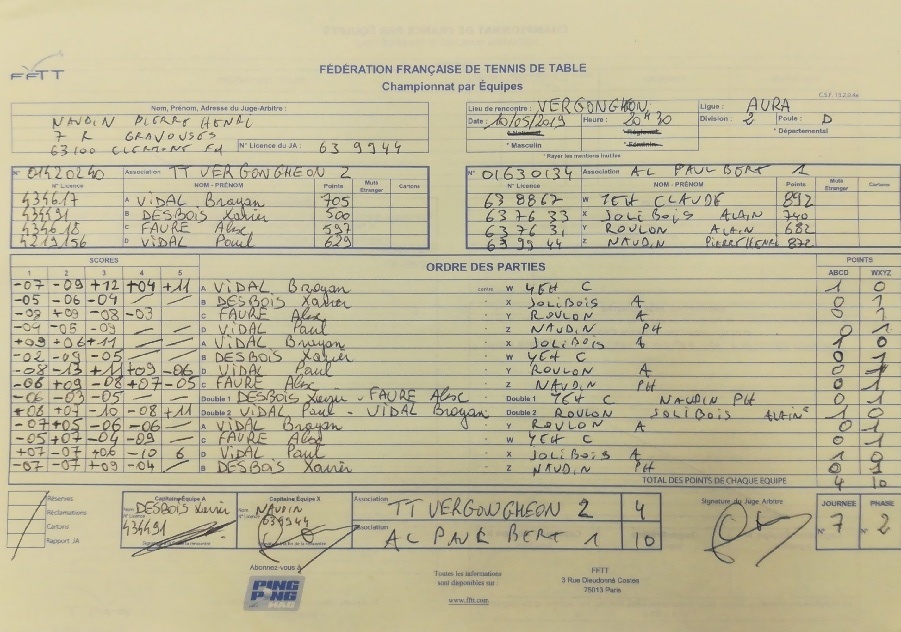 FFTT
FÉDÉRATION FRANÇAISE DE TENNIS DE TABLE
Championnat par Équipes
Nom, Prénom, Adresse du Juge-Arbitre :
NAUDIN PIERRE HENRI
7 R GRAVOUSES
63100 CLERMONT Fd N° Licence du JA : 63 9944
Lieu de rencontre : VERGONGHEON Ligue : AURA
Date : 10/05/2019 Heure : 20H30 Division : 2 Poule : D
* National * Régional * Départemental
* Masculin * Féminin
* Rayer les mentions inutiles
N° 01420240 Association TT VERGONGHEON 2
N° Licence NOM - PRÉNOM Points Muté Etranger Cartons
434617 A VIDAL Brayan 705
434491 B DESBOIS Xavier 500
434618 C FAURE Alex 597
4219156 D VIDAL Paul 629
N° 01630134 Association AL PAUL BERT 1
N° Licence NOM - PRÉNOM Points Muté Etranger Cartons
63 8867 W YEH CLAUDE 892
63 76 33 X JOLIBOIS ALAIN 740
63 76 31 Y ROULON ALAIN 682
63 99 44 Z NAUDIN PIERRE HENRI 872
SCORES ORDRE DES PARTIES POINTS
1 2 3 4 5 ABCD WXYZ
-07 -09 +12 +04 +11 A VIDAL Brayan contre W YEH C 1 0
-05 -06 -04 B DESBOIS Xavier X JOLIBOIS A 0 1
-09 +09 -08 -03 C FAURE Alex Y ROULON A 0 1
-04 -05 -09 D VIDAL Paul Z NAUDIN PH 0 1
+09 +06 +11 A VIDAL Brayan X JOLIBOIS A 1 0
-02 -09 -05 B DESBOIS Xavier W YEH C 0 1
-08 -13 +11 +09 -06 D VIDAL Paul Y ROULON A 0 1
-06 +09 -08 +07 -05 C FAURE Alex Z NAUDIN PH 0 1
-06 -03 -05 Double 1 DESBOIS Xavier - FAURE Alex Double 1 YEH C NAUDIN PH 0 1
+06 +07 -10 -08 +11 Double 2 VIDAL Paul - VIDAL Brayan Double 2 ROULON JOLIBOIS ALAIN 1 0
-07 +05 -06 -06 A VIDAL Brayan Y ROULON A 0 1
-05 +07 -04 -09 C FAURE Alex W YEH C 0 1
+07 -07 +06 -10 6 D VIDAL Paul X JOLIBOIS A 1 0
-07 -07 +09 -04 B DESBOIS Xavier Z NAUDIN PH 0 1
TOTAL DES POINTS DE CHAQUE EQUIPE 4 10
Réserves
Réclamations
Cartons
Rapport JA
Capitaine Equipe A
Nom DESBOIS Xavier
434491
Capitaine Equipe X
Nom NAUDIN
639944
Association TT VERGONGHEON 2 4
Association AL PAUL BERT 1 10
Signature du Juge Arbitre
JOURNEE PHASE
N° 7 N° 2
Abonnez-vous à
PING PONG MAG
Toutes les informations
sont disponibles sur :
www.fftt.com
FFTT
3 Rue Dieudonné Costes
75013 Paris